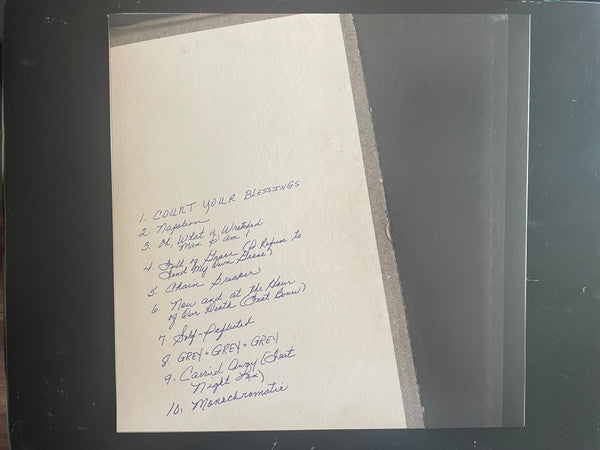 1. COUNT YOUR BLESSINGS
2. Napoleon
3. Oh, What a Wretched
Man I Am
4. Full of Grace (I Refuse to
Tend My Own Grave)
5. Chain Reaper
6. Now and at the Hour
of Our Death (feat Bonus)
7. Self-Inflicted
8. GREY + GREY + GREY
9. Carried Away (feat
Night Lex)
10. Monochromatic